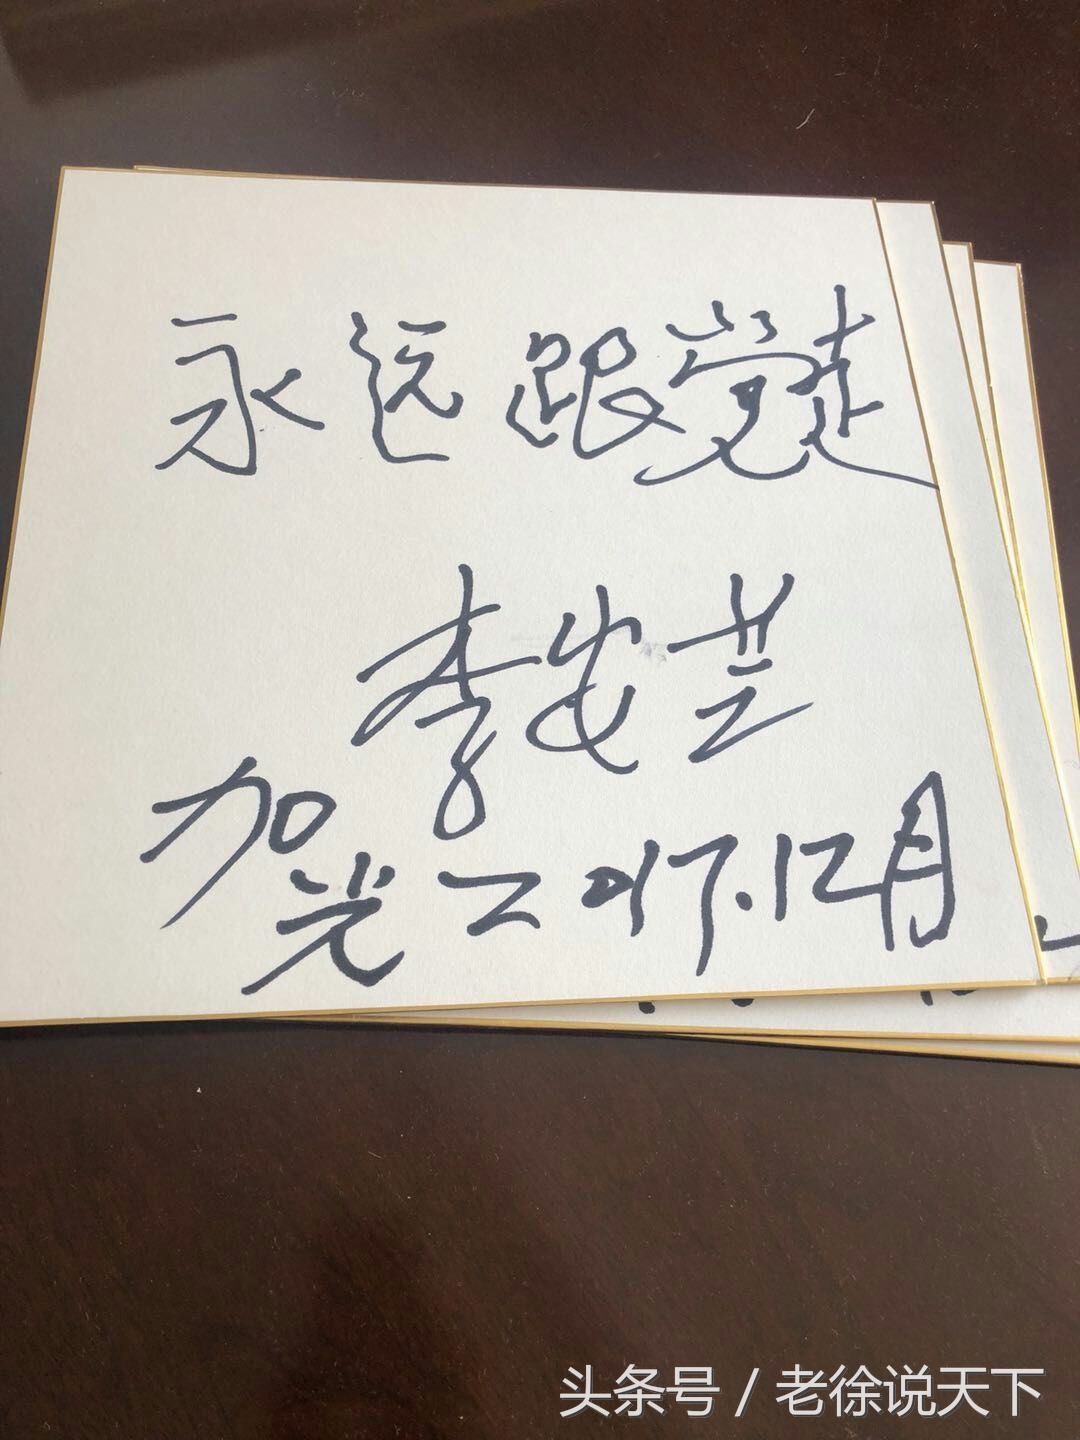 永远跟党走
李安
加
光二017.12月
头条号 / 老徐说天下